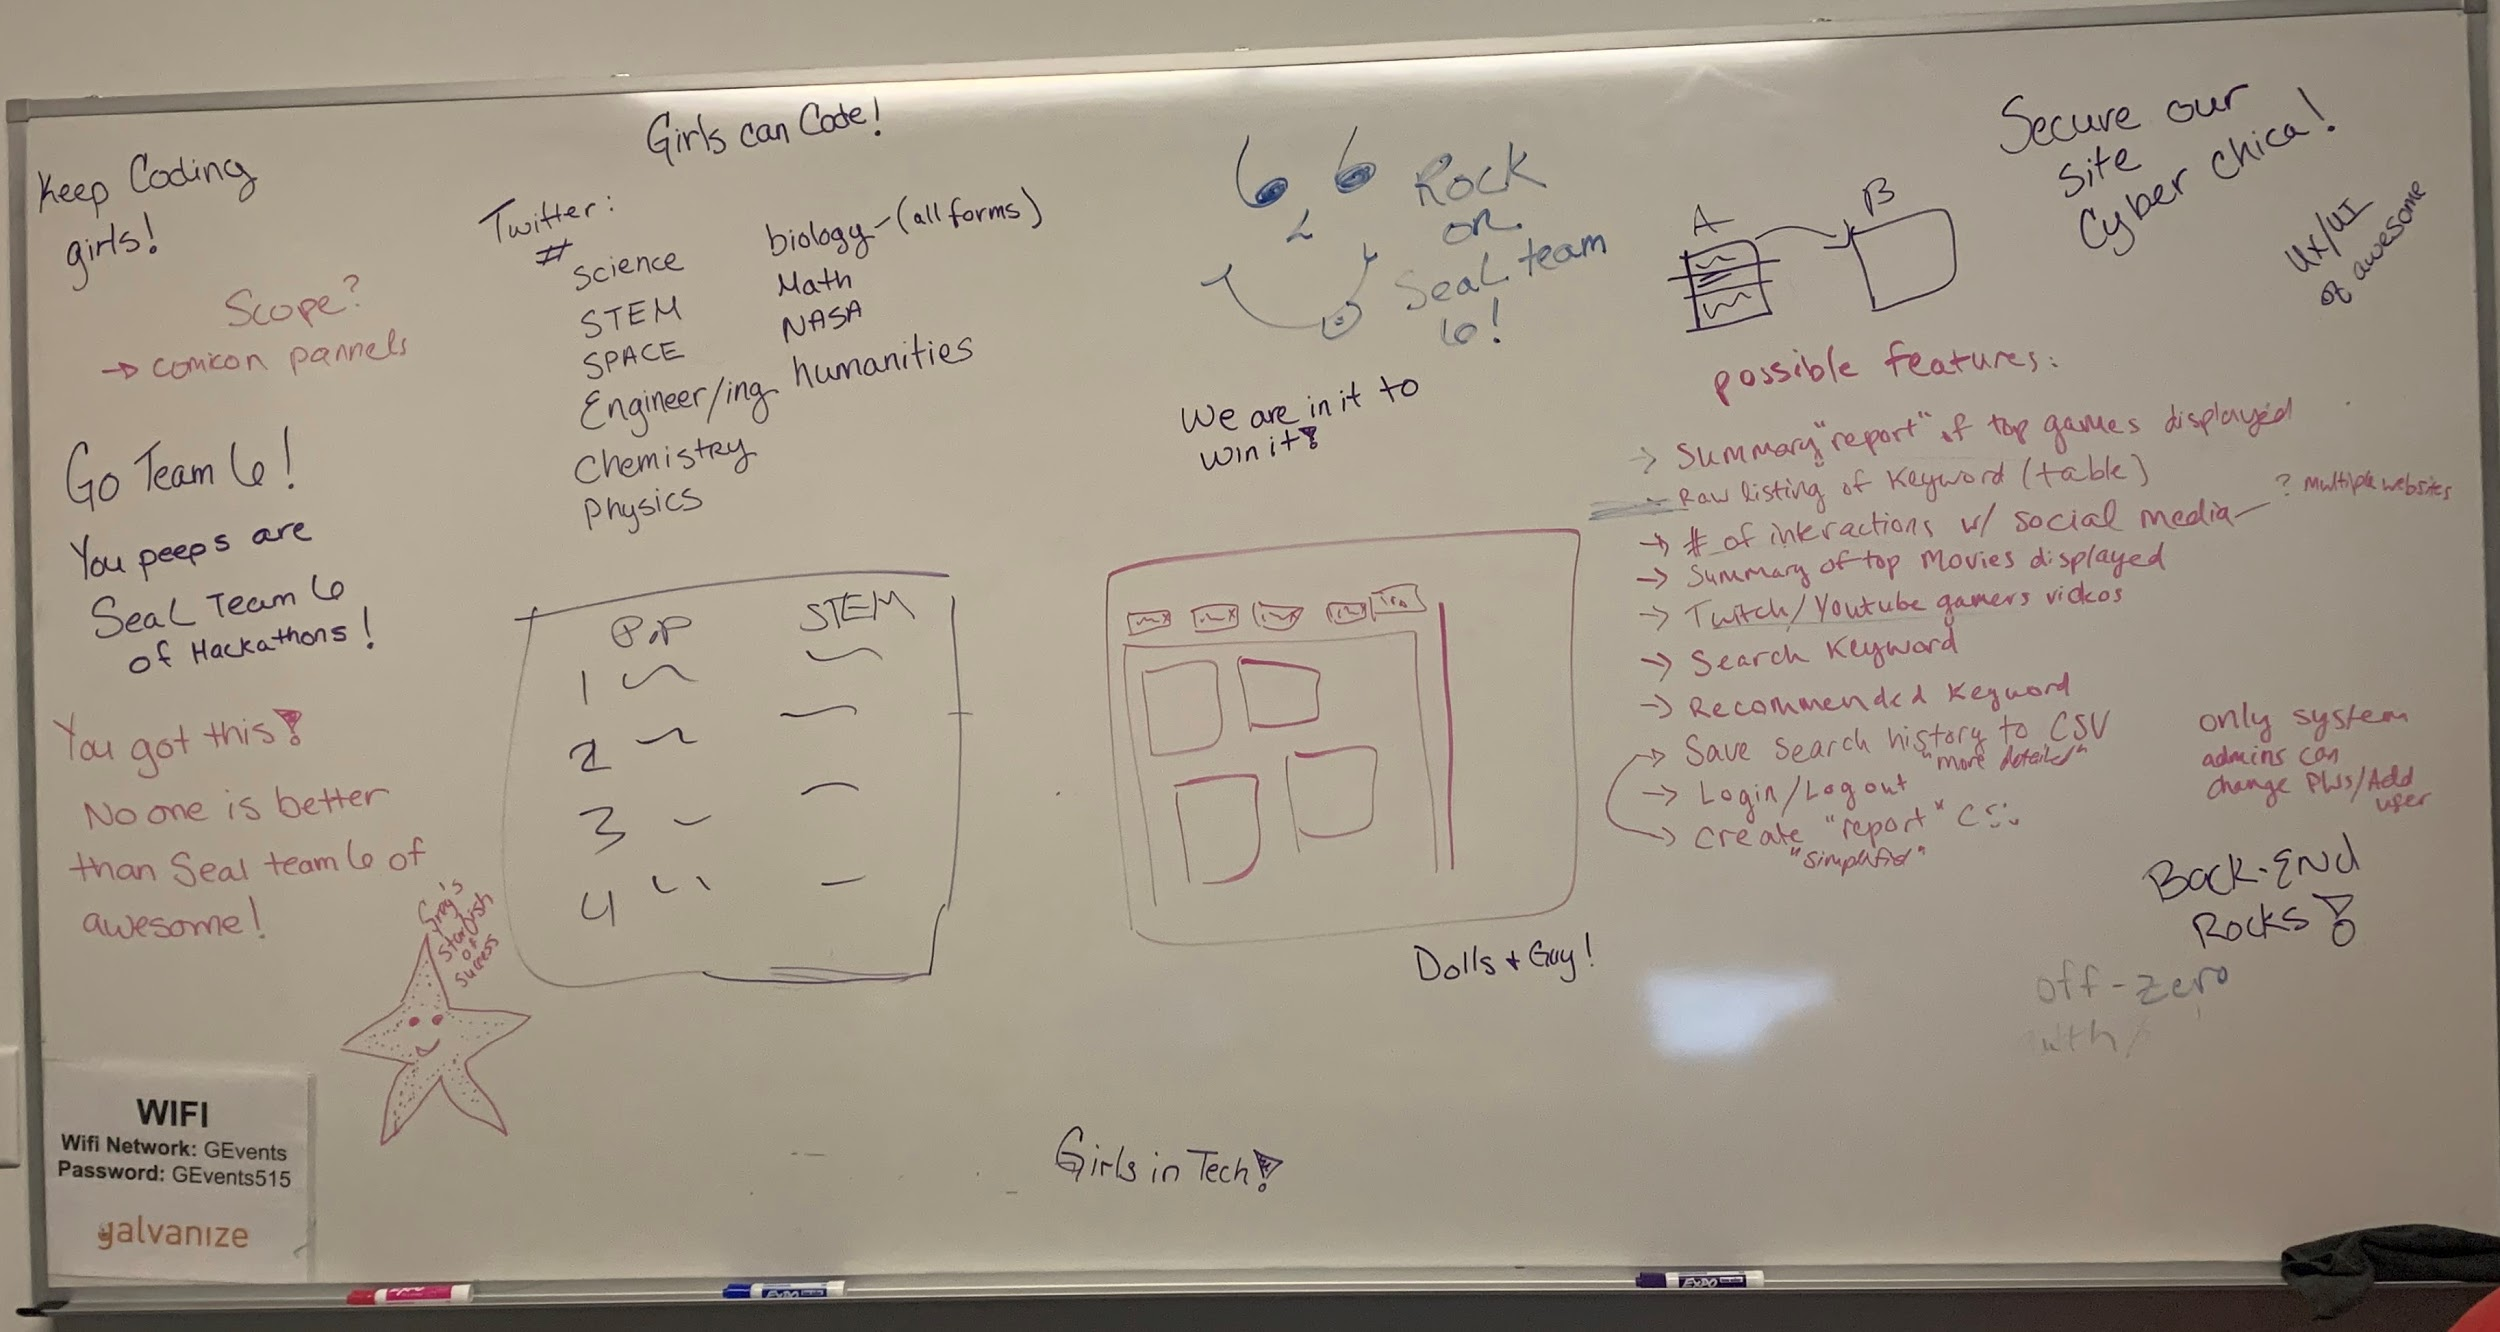 Keep Coding
girls!
Scope?
→ comicon pannels
Go Team 6!
You peeps are
Seal Team 6
of Hackathons!
You got this!
No one is better
than Seal team 6 of
awesome!
Greg's
starfish
of
success
WIFI
Wifi Network: GEvents
Password: GEvents515
galvanize
Girls can Code!
Twitter:
#
science
STEM
SPACE
Engineer/ing
Chemistry
Physics
biology-(all forms)
Math
NASA
humanities
POP STEM
1
2
3
4
Rock
on
Seal team
6!
We are in it to
win it!
Dolls + Guy!
Girls in Tech!
A B
Secure our
site
Cyber Chica!
UX/UI
of awesome
possible features:
→ Summary "report" of top games displayed
- Raw listing of keyword (table)
→ # of interactions w/ social media - ? Multiple websites
→ Summary of top Movies displayed
→ Twitch/Youtube gamers videos
→ Search Keyword
→ Recommended Keyword
→ Save search history to CSV
"more detailed"
→ Login/Logout
→ Create "report" CSV
"simplified"
only system
admins can
change PWs/Add
user
Back-End
Rocks!
off-zero